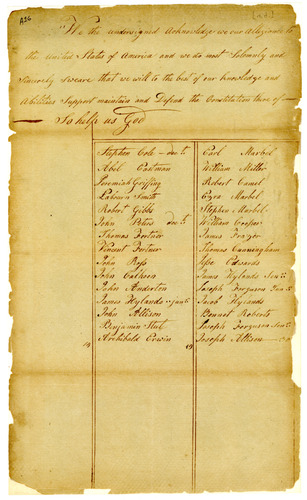 A26
[n.d.]
We the undersigned Acknowledge we our Allegiance to
the United States of America and we do most Solemnly and
Sincerely Sweare that we will to the best of our knowledge and
Abilities Support maintain and Defend the Constitution there of
So help us God
Stephen Cole
Earl Marbel
Abel Eastman
William Miller
Jeremiah Griffing
Robert Camel
Labourn Smith
Ezra Marbel
Robert Gibbs
Stephen Marbel
John Bites
William Cooper
Thomas Fortner
James Frazior
Vincent Fortner
Thomas Cunningham
John Ross
Jesse Edwards
John Calhoon
James Hylands Senr
James Anderton
Joseph Ferguson Junr
James Hylands Junr
Jacob Hylands
John Allison
Bennet Roberts
Benjamin
Joseph Ferguson Senr
Archibald Erwin
Joseph Allison
19
19